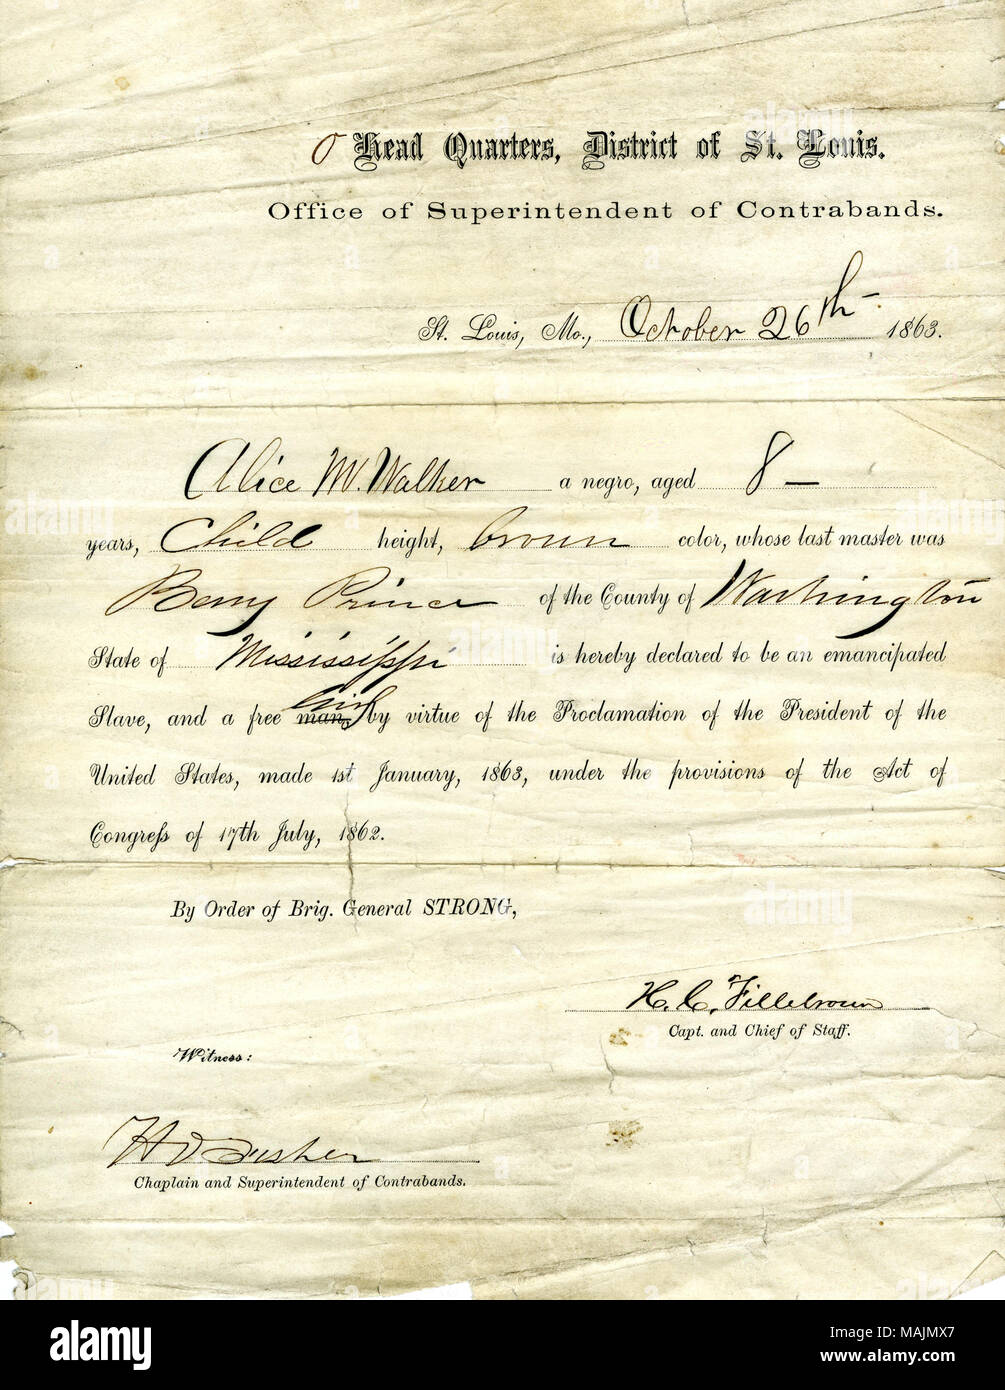 O Head Quarters, District of St. Louis.
Office of Superintendent of Contrabands.
St. Louis, Mo., October 26th 1863.
Alice M. Walker a negro, aged 8 —
years, Child height, brown color, whose last master was
Berry Prince of the County of Washington
State of Mississippi is hereby declared to be an emancipated
Slave, and a free man, girl by virtue of the Proclamation of the President of the
United States, made 1st January, 1863, under the provisions of the Act of
Congress of 17th July, 1862.
By Order of Brig. General STRONG,
H. C. Fillebrown
Capt. and Chief of Staff.
Witness:
H D Fisher
Chaplain and Superintendent of Contrabands.
alamy
Image ID: MAJMX7
www.alamy.com